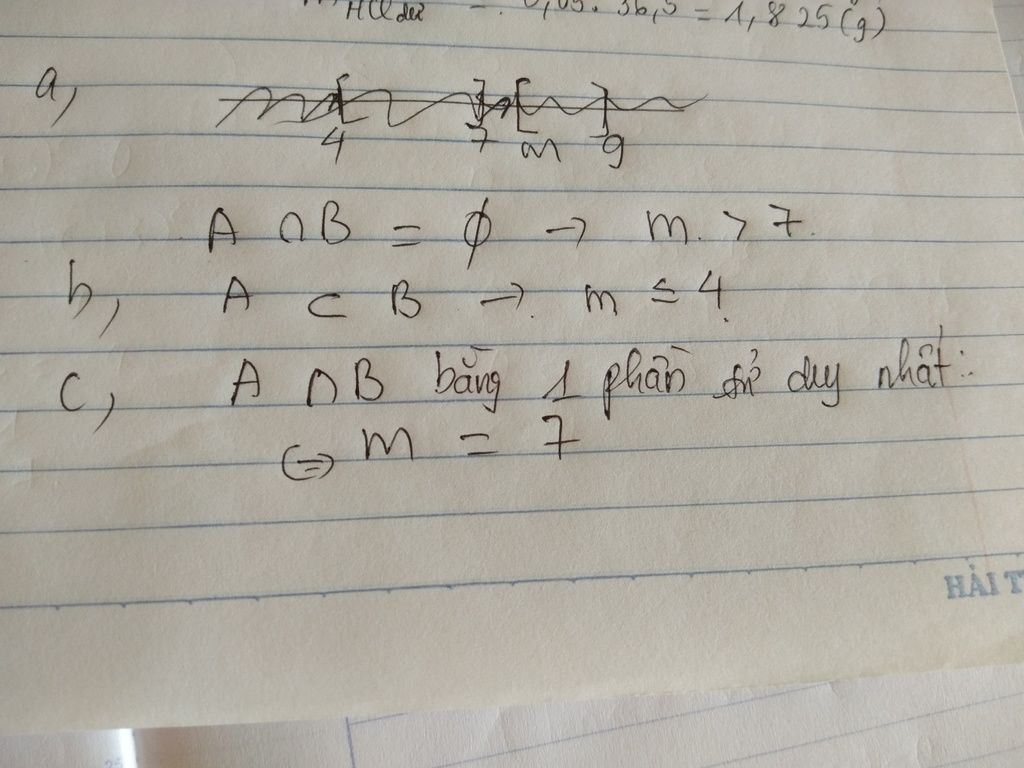 = 0,05. 36,5 = 1,825(g)
a,
4 7 m 9
A ∩ B = ∅ → m > 7.
b, A ⊂ B → m ≤ 4.
c, A ∩ B bằng 1 phần tử duy nhất:
⇔ m = 7
HẢI T